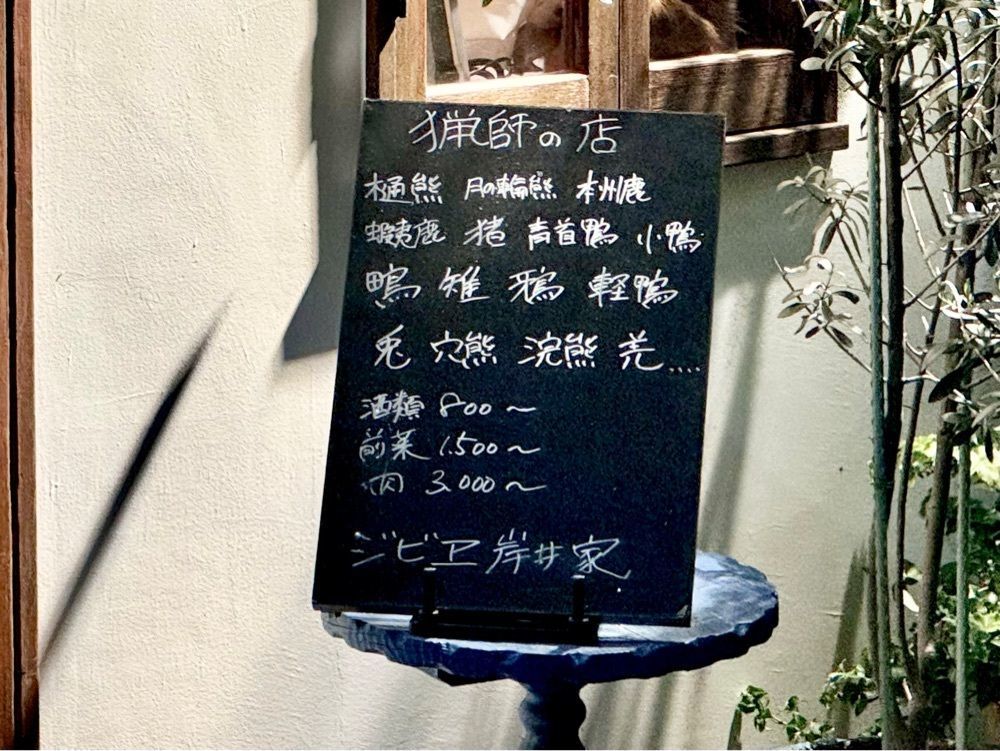 猟師の店
樋熊 月の輪熊 本州鹿
蝦夷鹿 猪 青首鴨 小鴨
鴨 雉 鴉 軽鴨
兎 穴熊 浣熊 羗....
酒類 800〜
前菜 1.500〜
肉 3.000〜
ジビエ 岸井家